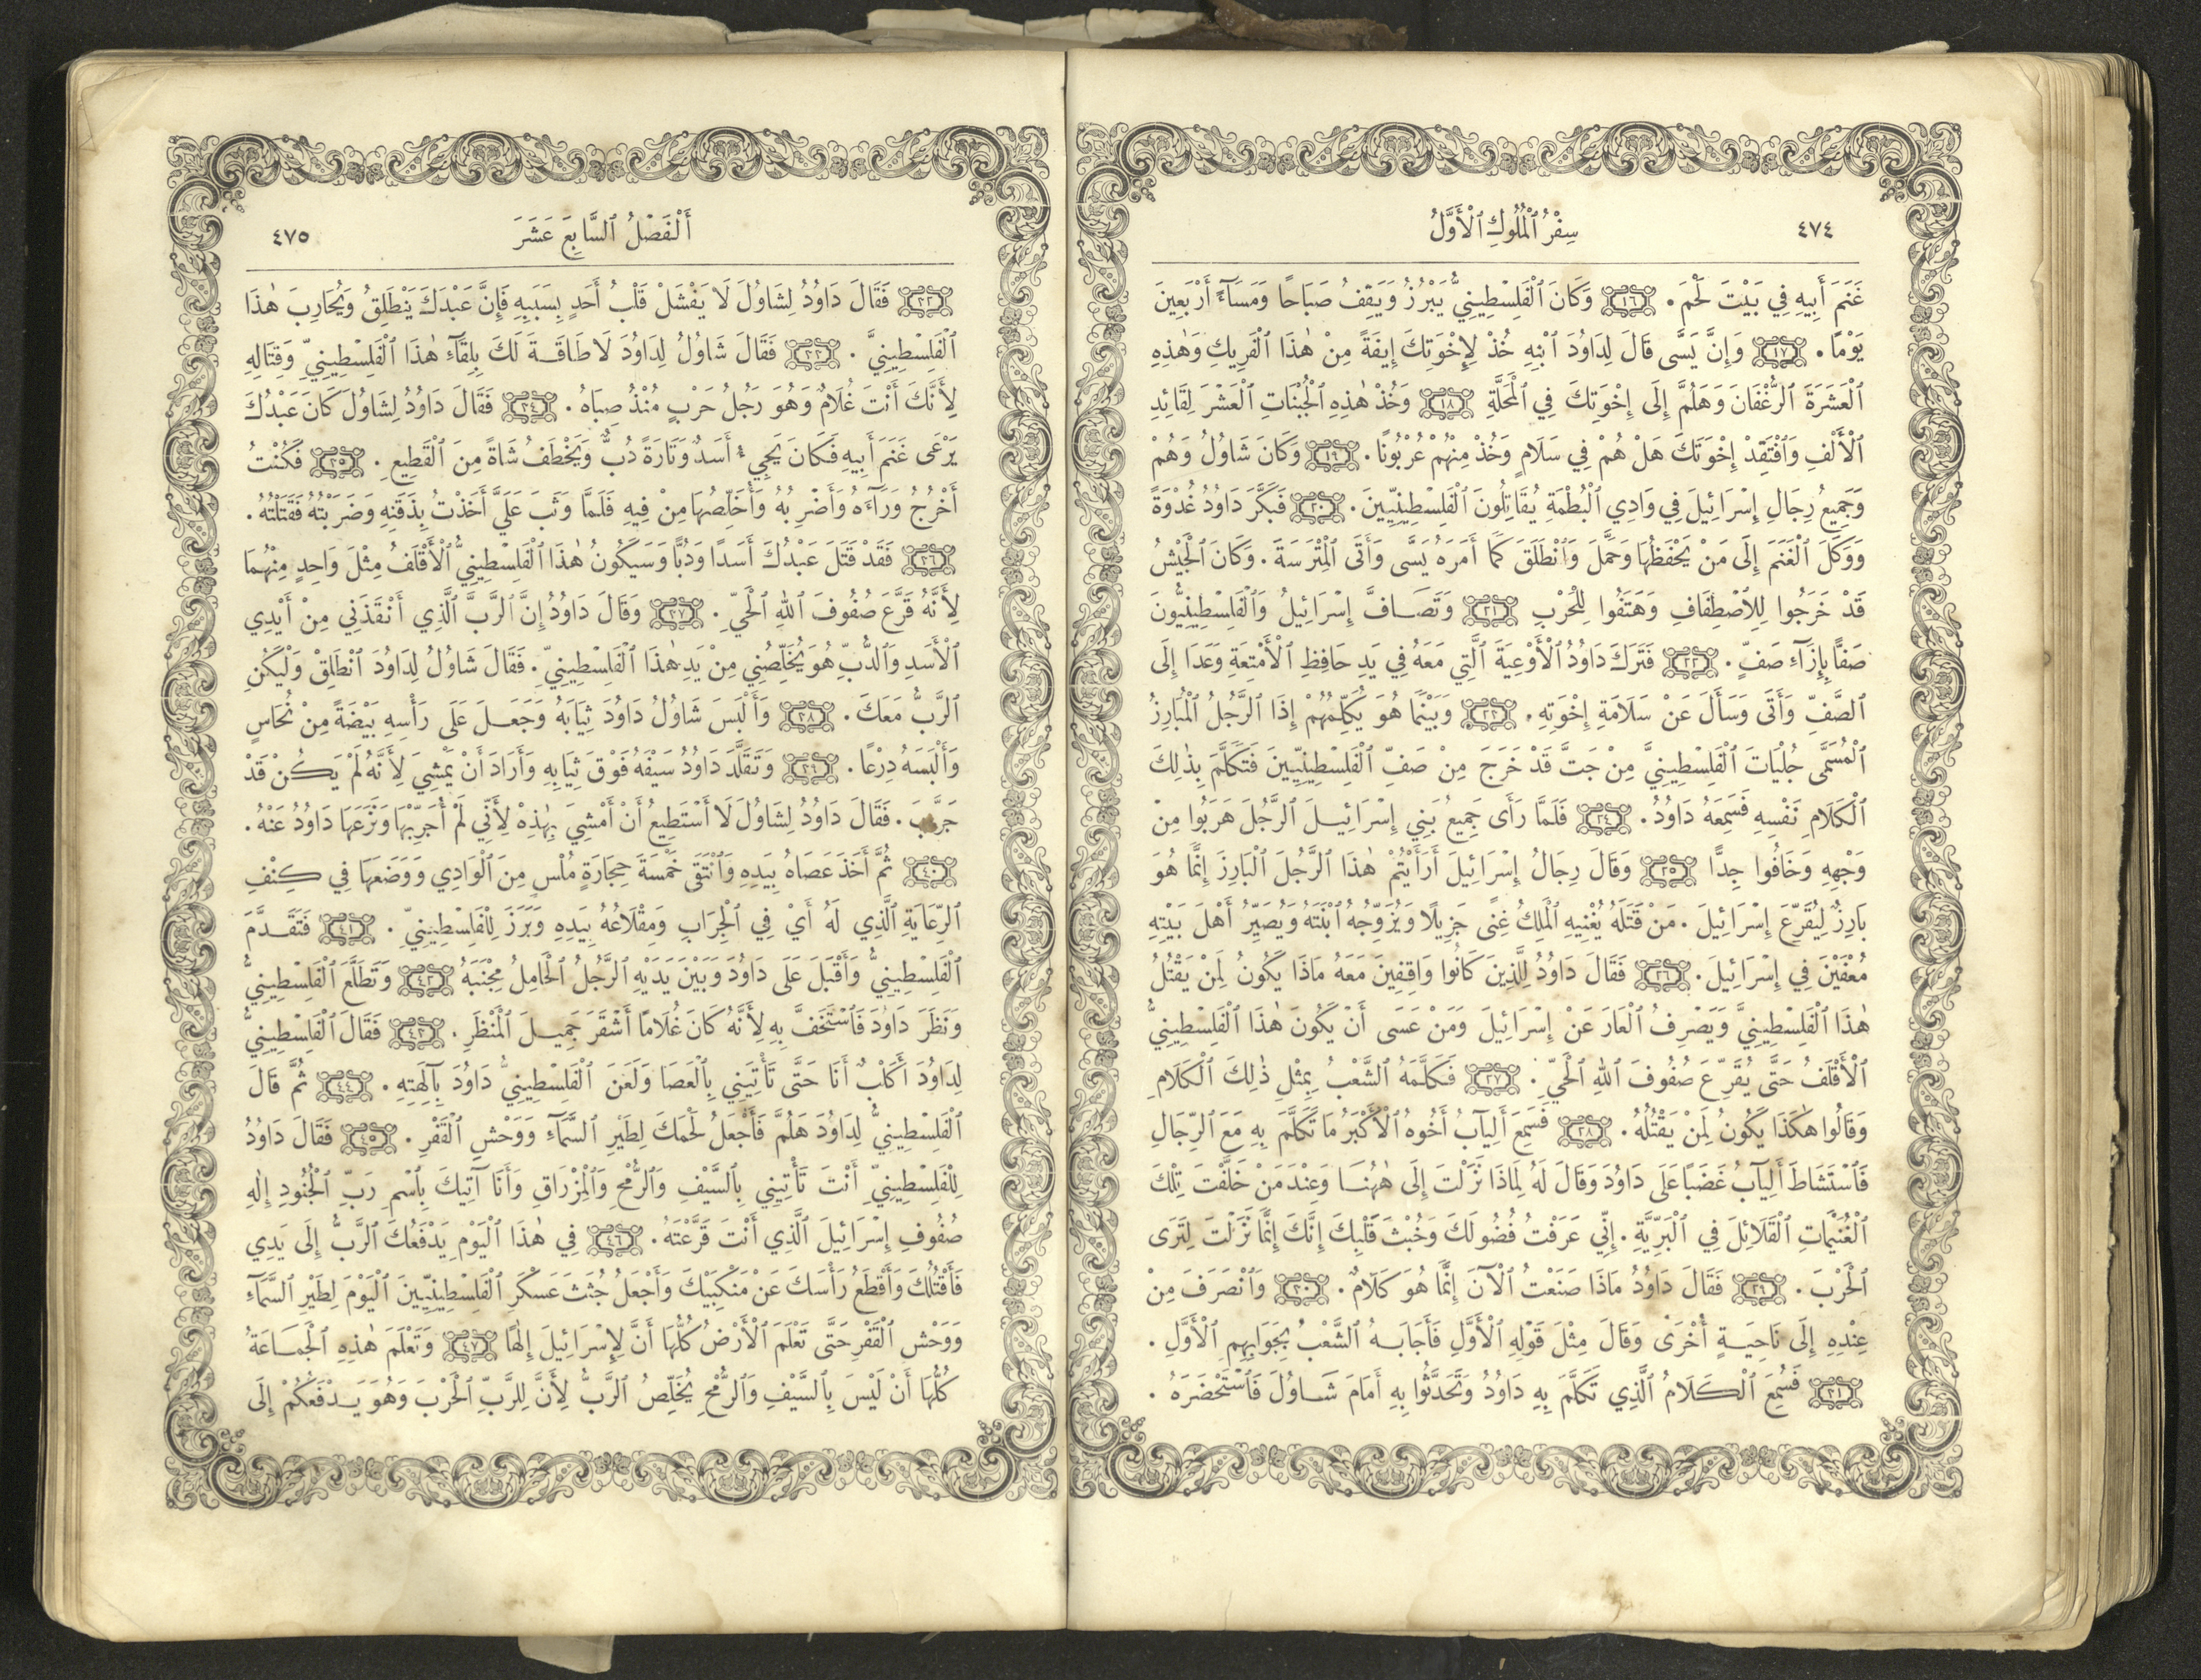 ٤٧٤
سِفْرُ ٱلْمُلُوكِ ٱلْأَوَّلُ
غَنَمَ أَبِيهِ فِي بَيْتَ لَحْمَ. ١٦ وَكَانَ ٱلْفَلِسْطِينِيُّ يَبْرُزُ وَيَقِفُ صَبَاحًا وَمَسَآءً أَرْبَعِينَ
يَوْمًا. ١٧ وَإِنَّ يَسَّى قَالَ لِدَاوُدَ ٱبْنِهِ خُذْ لِإِخْوَتِكَ إِيفَةً مِنْ هٰذَا ٱلْفَرِيكِ وَهٰذِهِ
ٱلْعَشَرَةَ ٱلرُّغْفَانَ وَهَلُمَّ إِلَى إِخْوَتِكَ فِي ٱلْمَحَلَّةِ ١٨ وَخُذْ هٰذِهِ ٱلْجُبْنَاتِ ٱلْعَشْرَ لِقَائِدِ
ٱلْأَلْفِ وَٱفْتَقِدْ إِخْوَتَكَ هَلْ هُمْ فِي سَلَامٍ وَخُذْ مِنْهُمْ عُرْبُونًا. ١٩ وَكَانَ شَاوُلُ وَهُمْ
وَجَمِيعُ رِجَالِ إِسْرَائِيلَ فِي وَادِي ٱلْبُطْمَةِ يُقَاتِلُونَ ٱلْفَلِسْطِينِيِّينَ. ٢٠ فَبَكَّرَ دَاوُدُ غُدْوَةً
وَوَكَلَ ٱلْغَنَمَ إِلَى مَنْ يَحْفَظُهَا وَحَمَّلَ وَٱنْطَلَقَ كَمَا أَمَرَهُ يَسَّى وَأَتَى ٱلْمِتْرَسَةَ. وَكَانَ ٱلْجَيْشُ
قَدْ خَرَجُوا لِلِٱصْطِفَافِ وَهَتَفُوا لِلْحَرْبِ ٢١ وَتَصَافَّ إِسْرَائِيلُ وَٱلْفَلِسْطِينِيُّونَ
صَفًّا بِإِزَآءِ صَفٍّ. ٢٢ فَتَرَكَ دَاوُدُ ٱلْأَوْعِيَةَ ٱلَّتِي مَعَهُ فِي يَدِ حَافِظِ ٱلْأَمْتِعَةِ وَعَدَا إِلَى
ٱلصَّفِّ وَأَتَى وَسَأَلَ عَنْ سَلَامَةِ إِخْوَتِهِ. ٢٣ وَبَيْنَمَا هُوَ يُكَلِّمُهُمْ إِذَا ٱلرَّجُلُ ٱلْمُبَارِزُ
ٱلْمُسَمَّى جُلْيَاتَ ٱلْفَلِسْطِينِيَّ مِنْ جَتَّ قَدْ خَرَجَ مِنْ صَفِّ ٱلْفَلِسْطِينِيِّينَ فَتَكَلَّمَ بِذٰلِكَ
ٱلْكَلَامِ نَفْسِهِ فَسَمِعَهُ دَاوُدُ. ٢٤ فَلَمَّا رَأَى جَمِيعُ بَنِي إِسْرَائِيلَ ٱلرَّجُلَ هَرَبُوا مِنْ
وَجْهِهِ وَخَافُوا جِدًّا ٢٥ وَقَالَ رِجَالُ إِسْرَائِيلَ أَرَأَيْتُمْ هٰذَا ٱلرَّجُلَ ٱلْبَارِزَ إِنَّمَا هُوَ
بَارِزٌ لِيُقَرِّعَ إِسْرَائِيلَ. مَنْ قَتَلَهُ يُغْنِيهِ ٱلْمَلِكُ غِنًى جَزِيلًا وَيُزَوِّجُهُ ٱبْنَتَهُ وَيُصَيِّرُ أَهْلَ بَيْتِهِ
مُعْفَيْنَ فِي إِسْرَائِيلَ. ٢٦ فَقَالَ دَاوُدُ لِلَّذِينَ كَانُوا وَاقِفِينَ مَعَهُ مَاذَا يَكُونُ لِمَنْ يَقْتُلُ
هٰذَا ٱلْفَلِسْطِينِيَّ وَيَصْرِفُ ٱلْعَارَ عَنْ إِسْرَائِيلَ وَمَنْ عَسَى أَنْ يَكُونَ هٰذَا ٱلْفَلِسْطِينِيُّ
ٱلْأَقْلَفُ حَتَّى يُقَرِّعَ صُفُوفَ ٱللهِ ٱلْحَيِّ. ٢٧ فَكَلَّمَهُ ٱلشَّعْبُ بِمِثْلِ ذٰلِكَ ٱلْكَلَامِ
وَقَالُوا هٰكَذَا يَكُونُ لِمَنْ يَقْتُلُهُ. ٢٨ فَسَمِعَ أَلِيآبُ أَخُوهُ ٱلْأَكْبَرُ مَا تَكَلَّمَ بِهِ مَعَ ٱلرِّجَالِ
فَٱسْتَشَاطَ أَلِيآبُ غَضَبًا عَلَى دَاوُدَ وَقَالَ لَهُ لِمَاذَا نَزَلْتَ إِلَى هٰهُنَا وَعِنْدَ مَنْ خَلَّفْتَ تِلْكَ
ٱلْغُنَيْمَاتِ ٱلْقَلَائِلَ فِي ٱلْبَرِّيَّةِ. إِنِّي عَرَفْتُ فُضُولَكَ وَخُبْثَ قَلْبِكَ إِنَّكَ إِنَّمَا نَزَلْتَ لِتَرَى
ٱلْحَرْبَ. ٢٩ فَقَالَ دَاوُدُ مَاذَا صَنَعْتُ ٱلْآنَ إِنَّمَا هُوَ كَلَامٌ. ٣٠ وَٱنْصَرَفَ مِنْ
عِنْدِهِ إِلَى نَاحِيَةٍ أُخْرَى وَقَالَ مِثْلَ قَوْلِهِ ٱلْأَوَّلِ فَأَجَابَهُ ٱلشَّعْبُ بِجَوَابِهِمِ ٱلْأَوَّلِ.
٣١ فَسُمِعَ ٱلْكَلَامُ ٱلَّذِي تَكَلَّمَ بِهِ دَاوُدُ وَتَحَدَّثُوا بِهِ أَمَامَ شَاوُلَ فَٱسْتَحْضَرَهُ.
أَلْفَصْلُ ٱلسَّابِعَ عَشَرَ
٤٧٥
٣٢ فَقَالَ دَاوُدُ لِشَاوُلَ لَا يَفْشَلْ قَلْبُ أَحَدٍ بِسَبَبِهِ فَإِنَّ عَبْدَكَ يَنْطَلِقُ وَيُحَارِبَ هٰذَا
ٱلْفَلِسْطِينِيَّ. ٣٣ فَقَالَ شَاوُلُ لِدَاوُدَ لَا طَاقَةَ لَكَ بِلِقَآءِ هٰذَا ٱلْفَلِسْطِينِيِّ وَقِتَالِهِ
لِأَنَّكَ أَنْتَ غُلَامٌ وَهُوَ رَجُلُ حَرْبٍ مُنْذُ صِبَاهُ. ٣٤ فَقَالَ دَاوُدُ لِشَاوُلَ كَانَ عَبْدُكَ
يَرْعَى غَنَمَ أَبِيهِ فَكَانَ يَجِيءُ أَسَدٌ وَتَارَةً دُبٌّ وَيَخْطَفُ شَاةً مِنَ ٱلْقَطِيعِ. ٣٥ فَكُنْتُ
أَخْرُجُ وَرَآءَهُ وَأَضْرِبُهُ وَأُخَلِّصُهَا مِنْ فِيهِ فَلَمَّا وَثَبَ عَلَيَّ أَخَذْتُ بِذَقَنِهِ وَضَرَبْتُهُ فَقَتَلْتُهُ.
٣٦ فَقَدْ قَتَلَ عَبْدُكَ أَسَدًا وَدُبًّا وَسَيَكُونُ هٰذَا ٱلْفَلِسْطِينِيُّ ٱلْأَقْلَفُ مِثْلَ وَاحِدٍ مِنْهُمَا
لِأَنَّهُ قَرَّعَ صُفُوفَ ٱللهِ ٱلْحَيِّ. ٣٧ وَقَالَ دَاوُدُ إِنَّ ٱلرَّبَّ ٱلَّذِي أَنْقَذَنِي مِنْ أَيْدِي
ٱلْأَسَدِ وَٱلدُّبِّ هُوَ يُخَلِّصُنِي مِنْ يَدِ هٰذَا ٱلْفَلِسْطِينِيِّ. فَقَالَ شَاوُلُ لِدَاوُدَ ٱنْطَلِقْ وَلْيَكُنِ
ٱلرَّبُّ مَعَكَ. ٣٨ وَأَلْبَسَ شَاوُلُ دَاوُدَ ثِيَابَهُ وَجَعَلَ عَلَى رَأْسِهِ بَيْضَةً مِنْ نُحَاسٍ
وَأَلْبَسَهُ دِرْعًا. ٣٩ وَتَقَلَّدَ دَاوُدُ سَيْفَهُ فَوْقَ ثِيَابِهِ وَأَرَادَ أَنْ يَمْشِيَ لِأَنَّهُ لَمْ يَكُنْ قَدْ
جَرَّبَ. فَقَالَ دَاوُدُ لِشَاوُلَ لَا أَسْتَطِيعُ أَنْ أَمْشِيَ بِهٰذِهْ لِأَنِّي لَمْ أُجَرِّبْهَا وَنَزَعَهَا دَاوُدُ عَنْهُ.
٤٠ ثُمَّ أَخَذَ عَصَاهُ بِيَدِهِ وَٱنْتَقَى خَمْسَةَ حِجَارَةٍ مُلْسٍ مِنَ ٱلْوَادِي وَوَضَعَهَا فِي كِنْفِ
ٱلرِّعَايَةِ ٱلَّذِي لَهُ أَيْ فِي ٱلْجِرَابِ وَمِقْلَاعُهُ بِيَدِهِ وَبَرَزَ لِلْفَلِسْطِينِيِّ. ٤١ فَتَقَدَّمَ
ٱلْفَلِسْطِينِيُّ وَأَقْبَلَ عَلَى دَاوُدَ وَبَيْنَ يَدَيْهِ ٱلرَّجُلُ ٱلْحَامِلُ مِجْنَبَهُ ٤٢ وَتَطَلَّعَ ٱلْفَلِسْطِينِيُّ
وَنَظَرَ دَاوُدَ فَٱسْتَخَفَّ بِهِ لِأَنَّهُ كَانَ غُلَامًا أَشْقَرَ جَمِيلَ ٱلْمَنْظَرِ. ٤٣ فَقَالَ ٱلْفَلِسْطِينِيُّ
لِدَاوُدَ أَكَلْبٌ أَنَا حَتَّى تَأْتِيَنِي بِٱلْعَصَا وَلَعَنَ ٱلْفَلِسْطِينِيُّ دَاوُدَ بِآلِهَتِهِ. ٤٤ ثُمَّ قَالَ
ٱلْفَلِسْطِينِيُّ لِدَاوُدَ هَلُمَّ فَأَجْعَلَ لَحْمَكَ لِطَيْرِ ٱلسَّمَآءِ وَوَحْشِ ٱلْقَفْرِ. ٤٥ فَقَالَ دَاوُدُ
لِلْفَلِسْطِينِيِّ أَنْتَ تَأْتِينِي بِٱلسَّيْفِ وَٱلرُّمْحِ وَٱلْمِزْرَاقِ وَأَنَا آتِيكَ بِٱسْمِ رَبِّ ٱلْجُنُودِ إِلٰهِ
صُفُوفِ إِسْرَائِيلَ ٱلَّذِي أَنْتَ قَرَّعْتَهُ. ٤٦ فِي هٰذَا ٱلْيَوْمِ يَدْفَعُكَ ٱلرَّبُّ إِلَى يَدِي
فَأَقْتُلُكَ وَأَقْطَعُ رَأْسَكَ عَنْ مَنْكِبَيْكَ وَأَجْعَلُ جُثَثَ عَسْكَرِ ٱلْفَلِسْطِينِيِّينَ ٱلْيَوْمَ لِطَيْرِ ٱلسَّمَآءِ
وَوَحْشِ ٱلْقَفْرِ حَتَّى تَعْلَمَ ٱلْأَرْضُ كُلُّهَا أَنَّ لِإِسْرَائِيلَ إِلٰهًا ٤٧ وَتَعْلَمَ هٰذِهِ ٱلْجَمَاعَةُ
كُلُّهَا أَنْ لَيْسَ بِٱلسَّيْفِ وَٱلرُّمْحِ يُخَلِّصُ ٱلرَّبُّ لِأَنَّ لِلرَّبِّ ٱلْحَرْبَ وَهُوَ يَدْفَعُكُمْ إِلَى